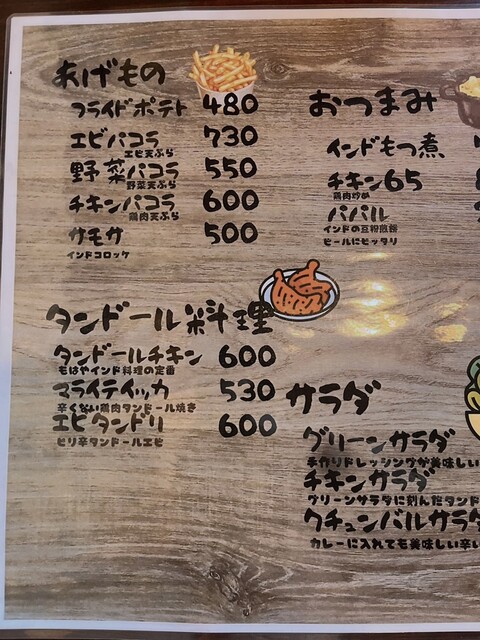 あげもの
フライドポテト 480
エビパコラ 730
エビ天ぷら
野菜パコラ 550
野菜天ぷら
チキンパコラ 600
鶏肉天ぷら
サモサ 500
インドコロッケ
タンドール料理
タンドールチキン 600
もはやインド料理の定番
マライテイッカ 530
辛くない鶏肉タンドール焼き
エビタンドリ 600
ピリ辛タンドールエビ
おつまみ
インドもつ煮
チキン65
鶏肉炒め
パパル
インドの豆粉煎餅
ビールにピッタリ
サラダ
グリーンサラダ
手作りドレッシングが美味しい
チキンサラダ
グリーンサラダに刻んだタンド
クチュンバルサラダ
カレーに入れても美味しい辛い